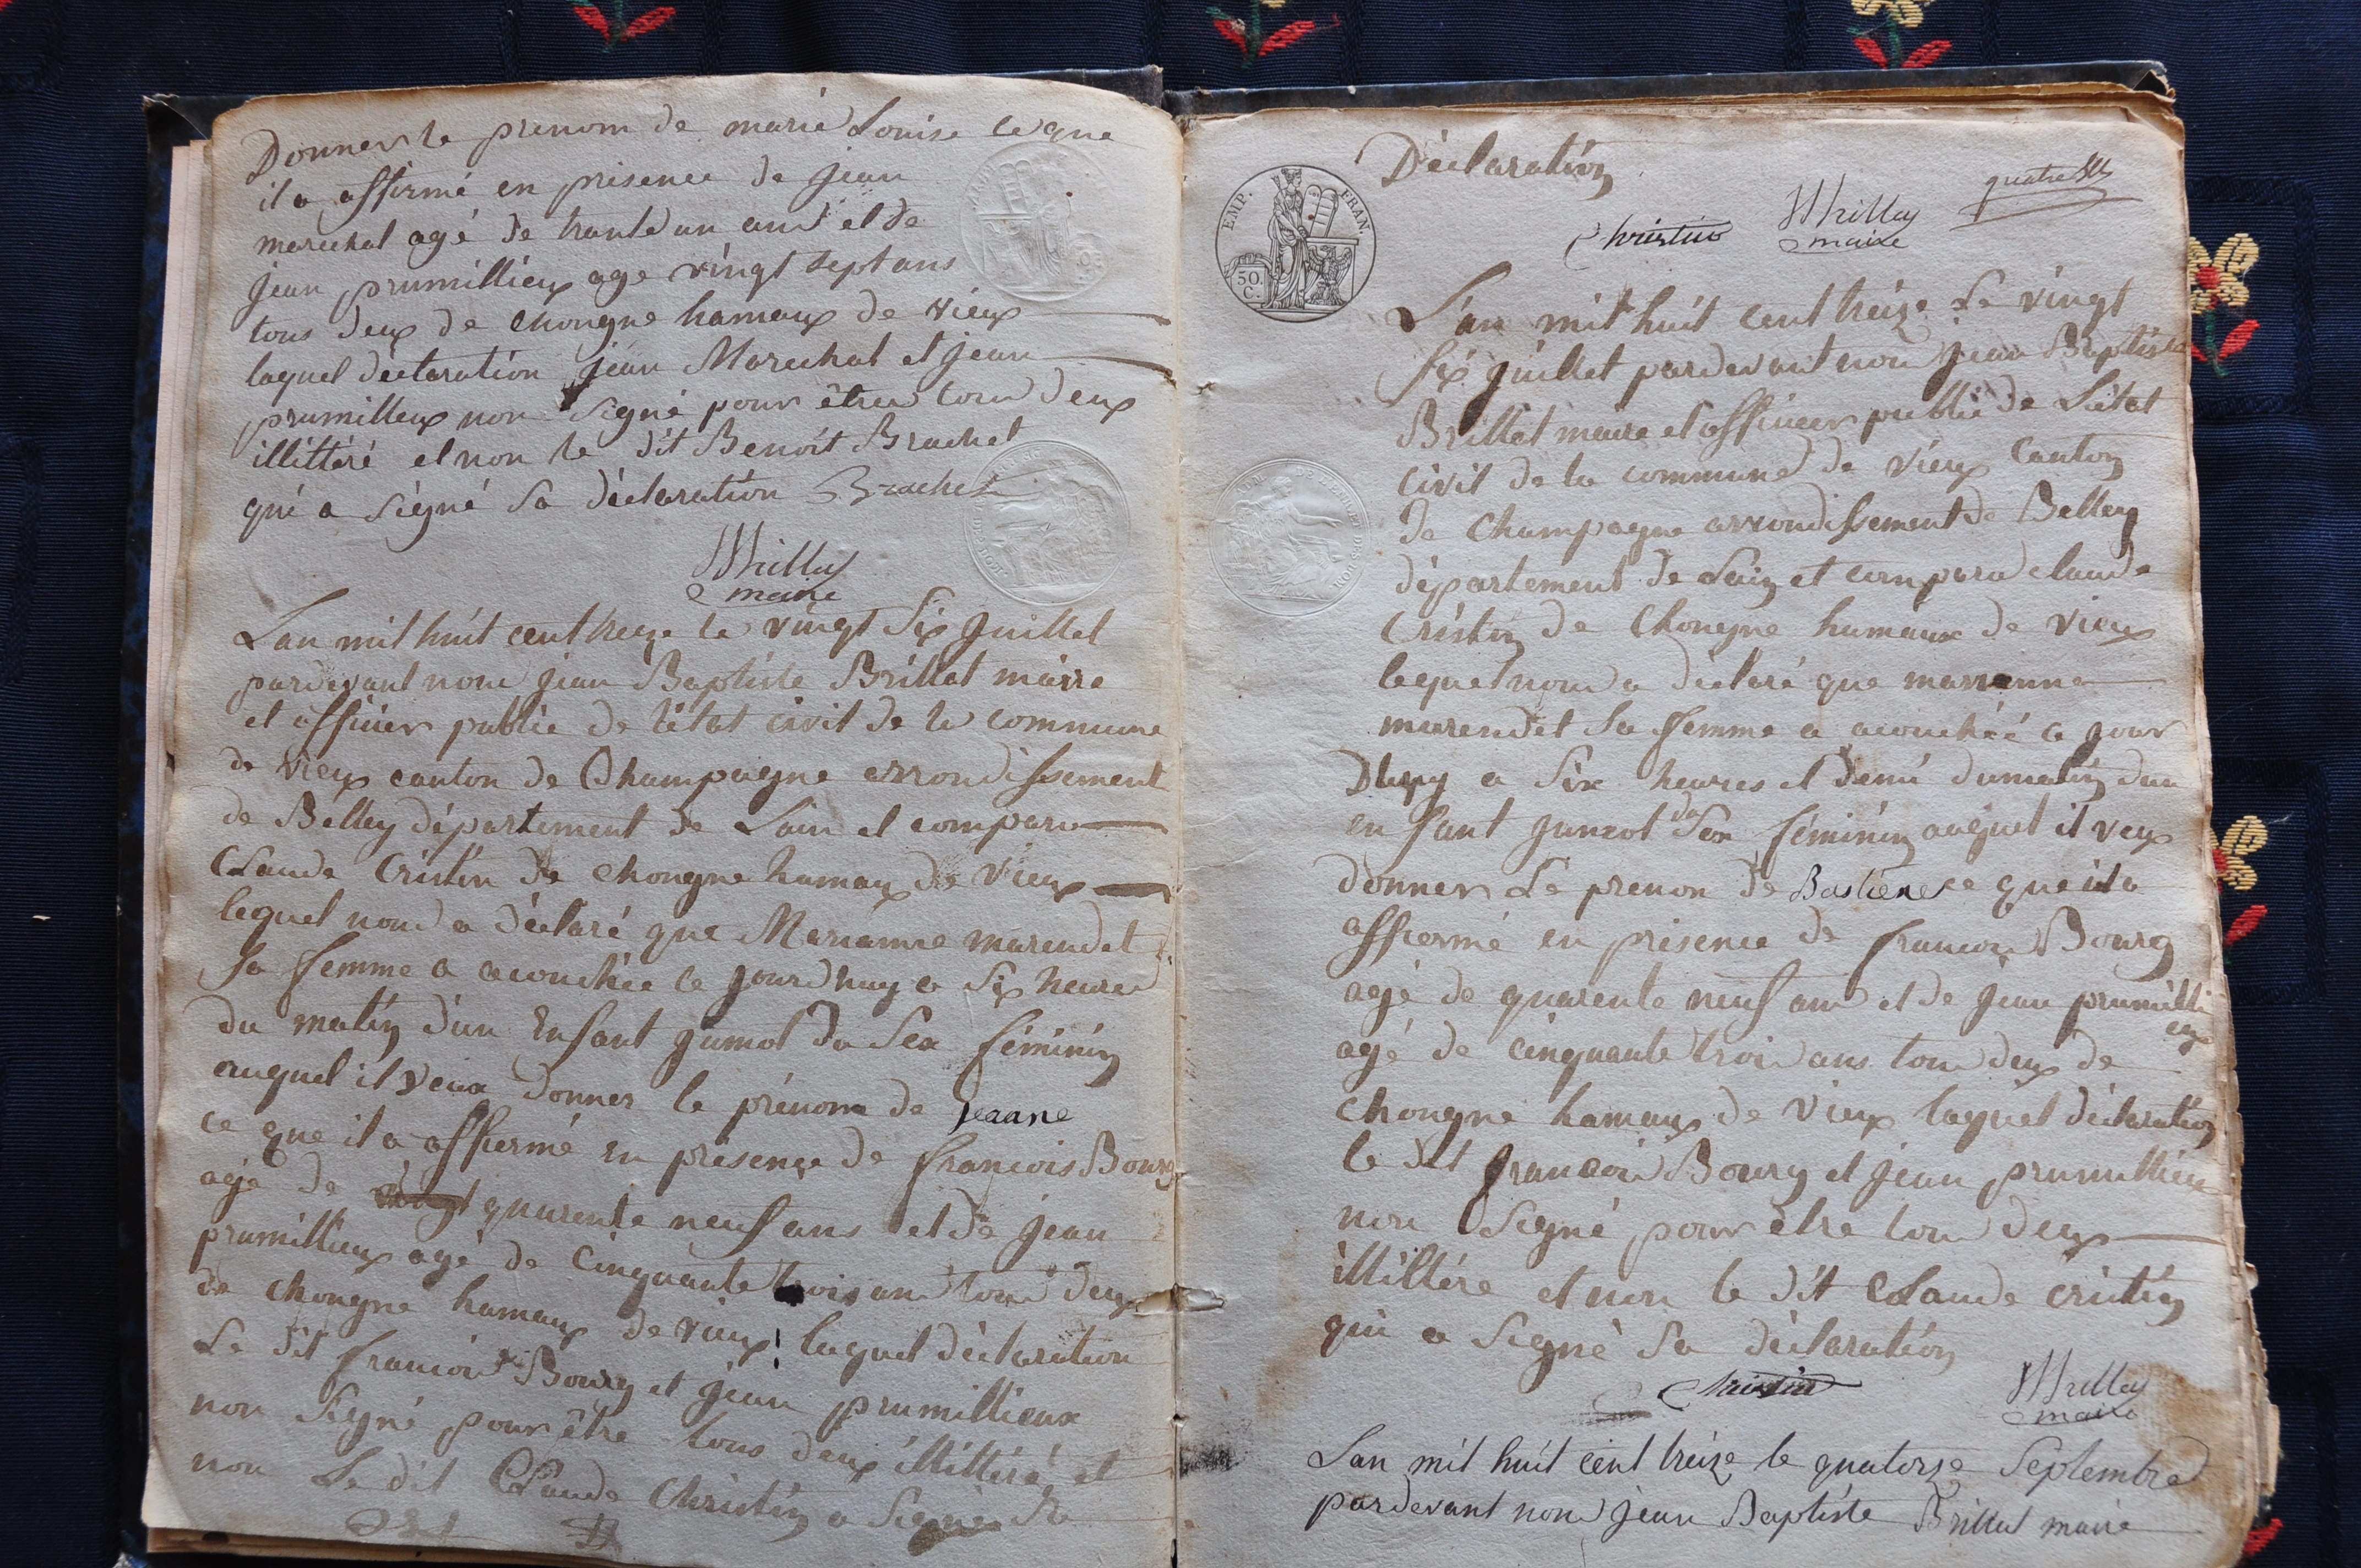 Donner le prenom de marie Louise ce que
il a affirmé en prisence de jean
marechal agé de trante un ans et de
jean prumillieux age vingt sept ans
tous deux de chongne hameaux de vieux
laquel déclaration jean Marechal et jean
prumilleux non signé pour être tous deux
illittéré et non le dit Benoit Brachet
qui a signé sa déclaration Brachet
Brillat
maire
Lan mil huit cent treize le vingt six juillet
pardevant nous jean Baptiste Brillat maire
et officier publie de l'état civil de la commune
de vieux canton de Champagne arrondissement
de Belley département de Lain et comparu
Claude Cristin de chongne hamaux de vieux
lequel nous a déclaré que Marianne marendet
sa femme a acouchée ce jourdhuy a six heures
du matin d'un Enfant jumot du sex féminin
auquel il veux donner le prénom de jeanne
ce que il a affiermé en présence de francois Bourg
agé de quarente neuf ans et de jean
prumillieux agé de cinquante trois ans tous deux
de chongne hameaux de vieux laquel déclaration
Le dit francois Bourg et jean prumillieux
non signé pour être tous deux illittéré et
non Le dit Claude Christin a signé sa
Déclaration
quatre
Christin
Brillat
maire
EMP. FRAN.
50.
C.
L'an mil huit cent treize Le vingt
six juillet pardevant nous jean Baptiste
Brillat maire et officier publie de L'état
civil de la commune de vieux Canton
de Champagne arrondissement de Belley
département de Lain et comparu claude
Cristin de Chongne hameaux de vieux
lequel nous a déclaré que marianne
marendet sa femme a acouchéé ce jour
Dhuy a six heures et demi dumatin dun
enfant jumot du sex féminin auquel il veux
donner Le prenon de Bastiene ce que il a
affiermé en présence de francois Bourg
agé de quarente neuf ans et de jean prumilli
eux
agé de cinquante trois ans tous deux de
chongne hameaux de vieux laquel déclaration
le dit francois Bourg et jean prumillieux
non signé pour être tous deux
illittére et non le dit Claude cristin
qui a signé sa déclaration
Christin
Brillat
maire
Lan mil huit cent treize le quatorze Septembre
pardevant nous jean Baptiste Brillat maire